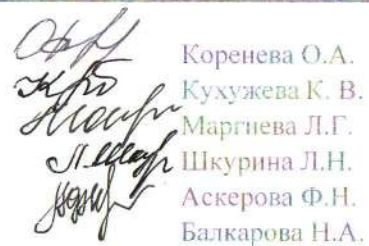 Коренева О.А.
Кухужева К. В.
Маргиева Л.Г.
Шкурина Л.Н.
Аскерова Ф.Н.
Балкарова Н.А.